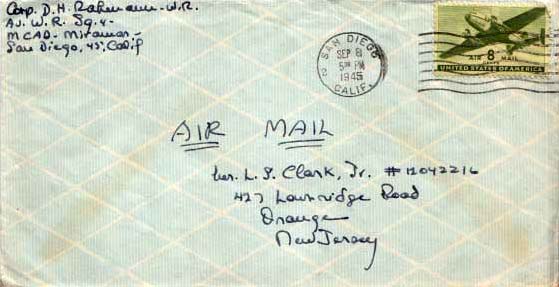 Corp. D. H. Rahmann - W.R.
AJ. W. R. Sq. 4 -
MCAD - Miramar -
San Diego, 45, Calif
SAN DIEGO
2
SEP 8
5 PM
1945
CALIF.
AIR 8¢ MAIL
UNITED STATES OF AMERICA
AIR MAIL
L. S. Clark, Jr. # 12042216
427 Road
Orange
New Jersey